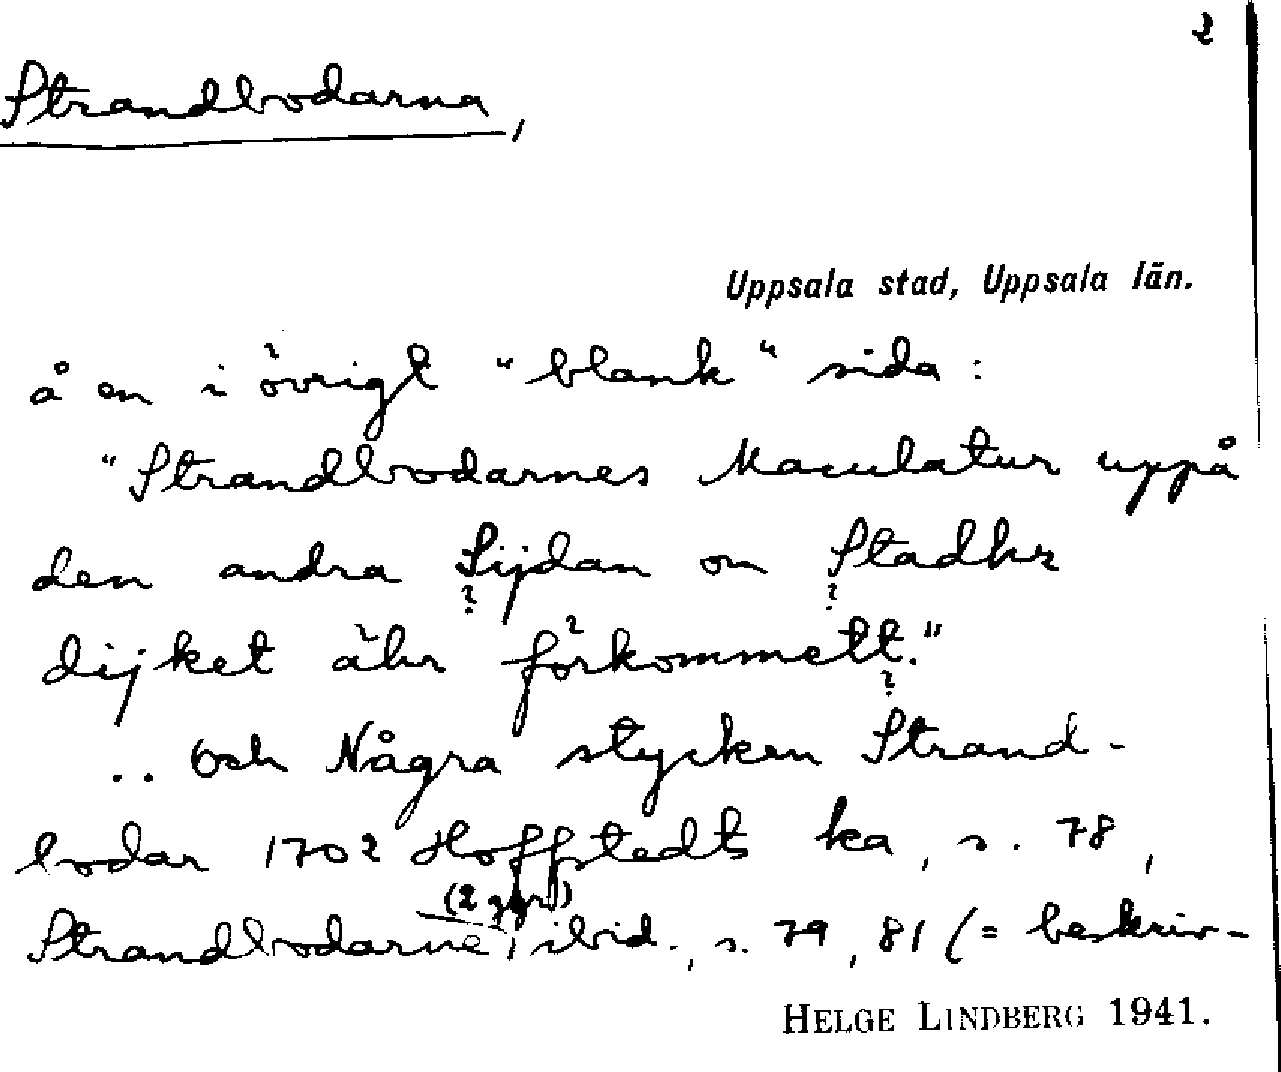 2
Strandbodarna,
Uppsala stad, Uppsala län.
å en i övrigt "blank" sida:
"Strandbodarnes Maculatur uppå
den andra Sijdan om Stadhz
? ?
dijket ähr förkommett."
?
.. och Några stycken Strand-
bodar 1702 Hoffstedts ka, s. 78,
(2 ggr)
Strandbodarne, ibid., s. 79, 81 (= beskriv-
HELGE LINDBERG 1941.